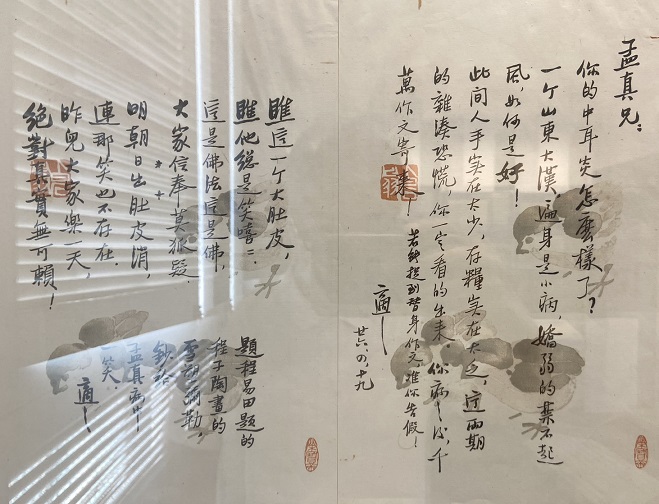 孟真兄：
你的中耳炎怎麼樣了？
一个山東大漢，遍身是小病，嬌弱的禁不起
風，如何是好！
此間人手实在太少，存糧实在太乏，这兩期
的雜湊恐慌，你一定看的出来。你病一好，千
萬作文寄来！若能捉到替身作文，准你告假！
適
廿六、四、十九
睢这一个大肚皮，
睢他總是笑嘻嘻．
这是佛法这是佛，
大家信奉莫狐疑．
明朝日出肚皮消，
連那笑也不存在．
昨兒大家樂一天，
絕對真實無可賴！
題程易田題的
程子陶畫的
雪中彌勒，
鈔給
孟真病中
一笑．
適